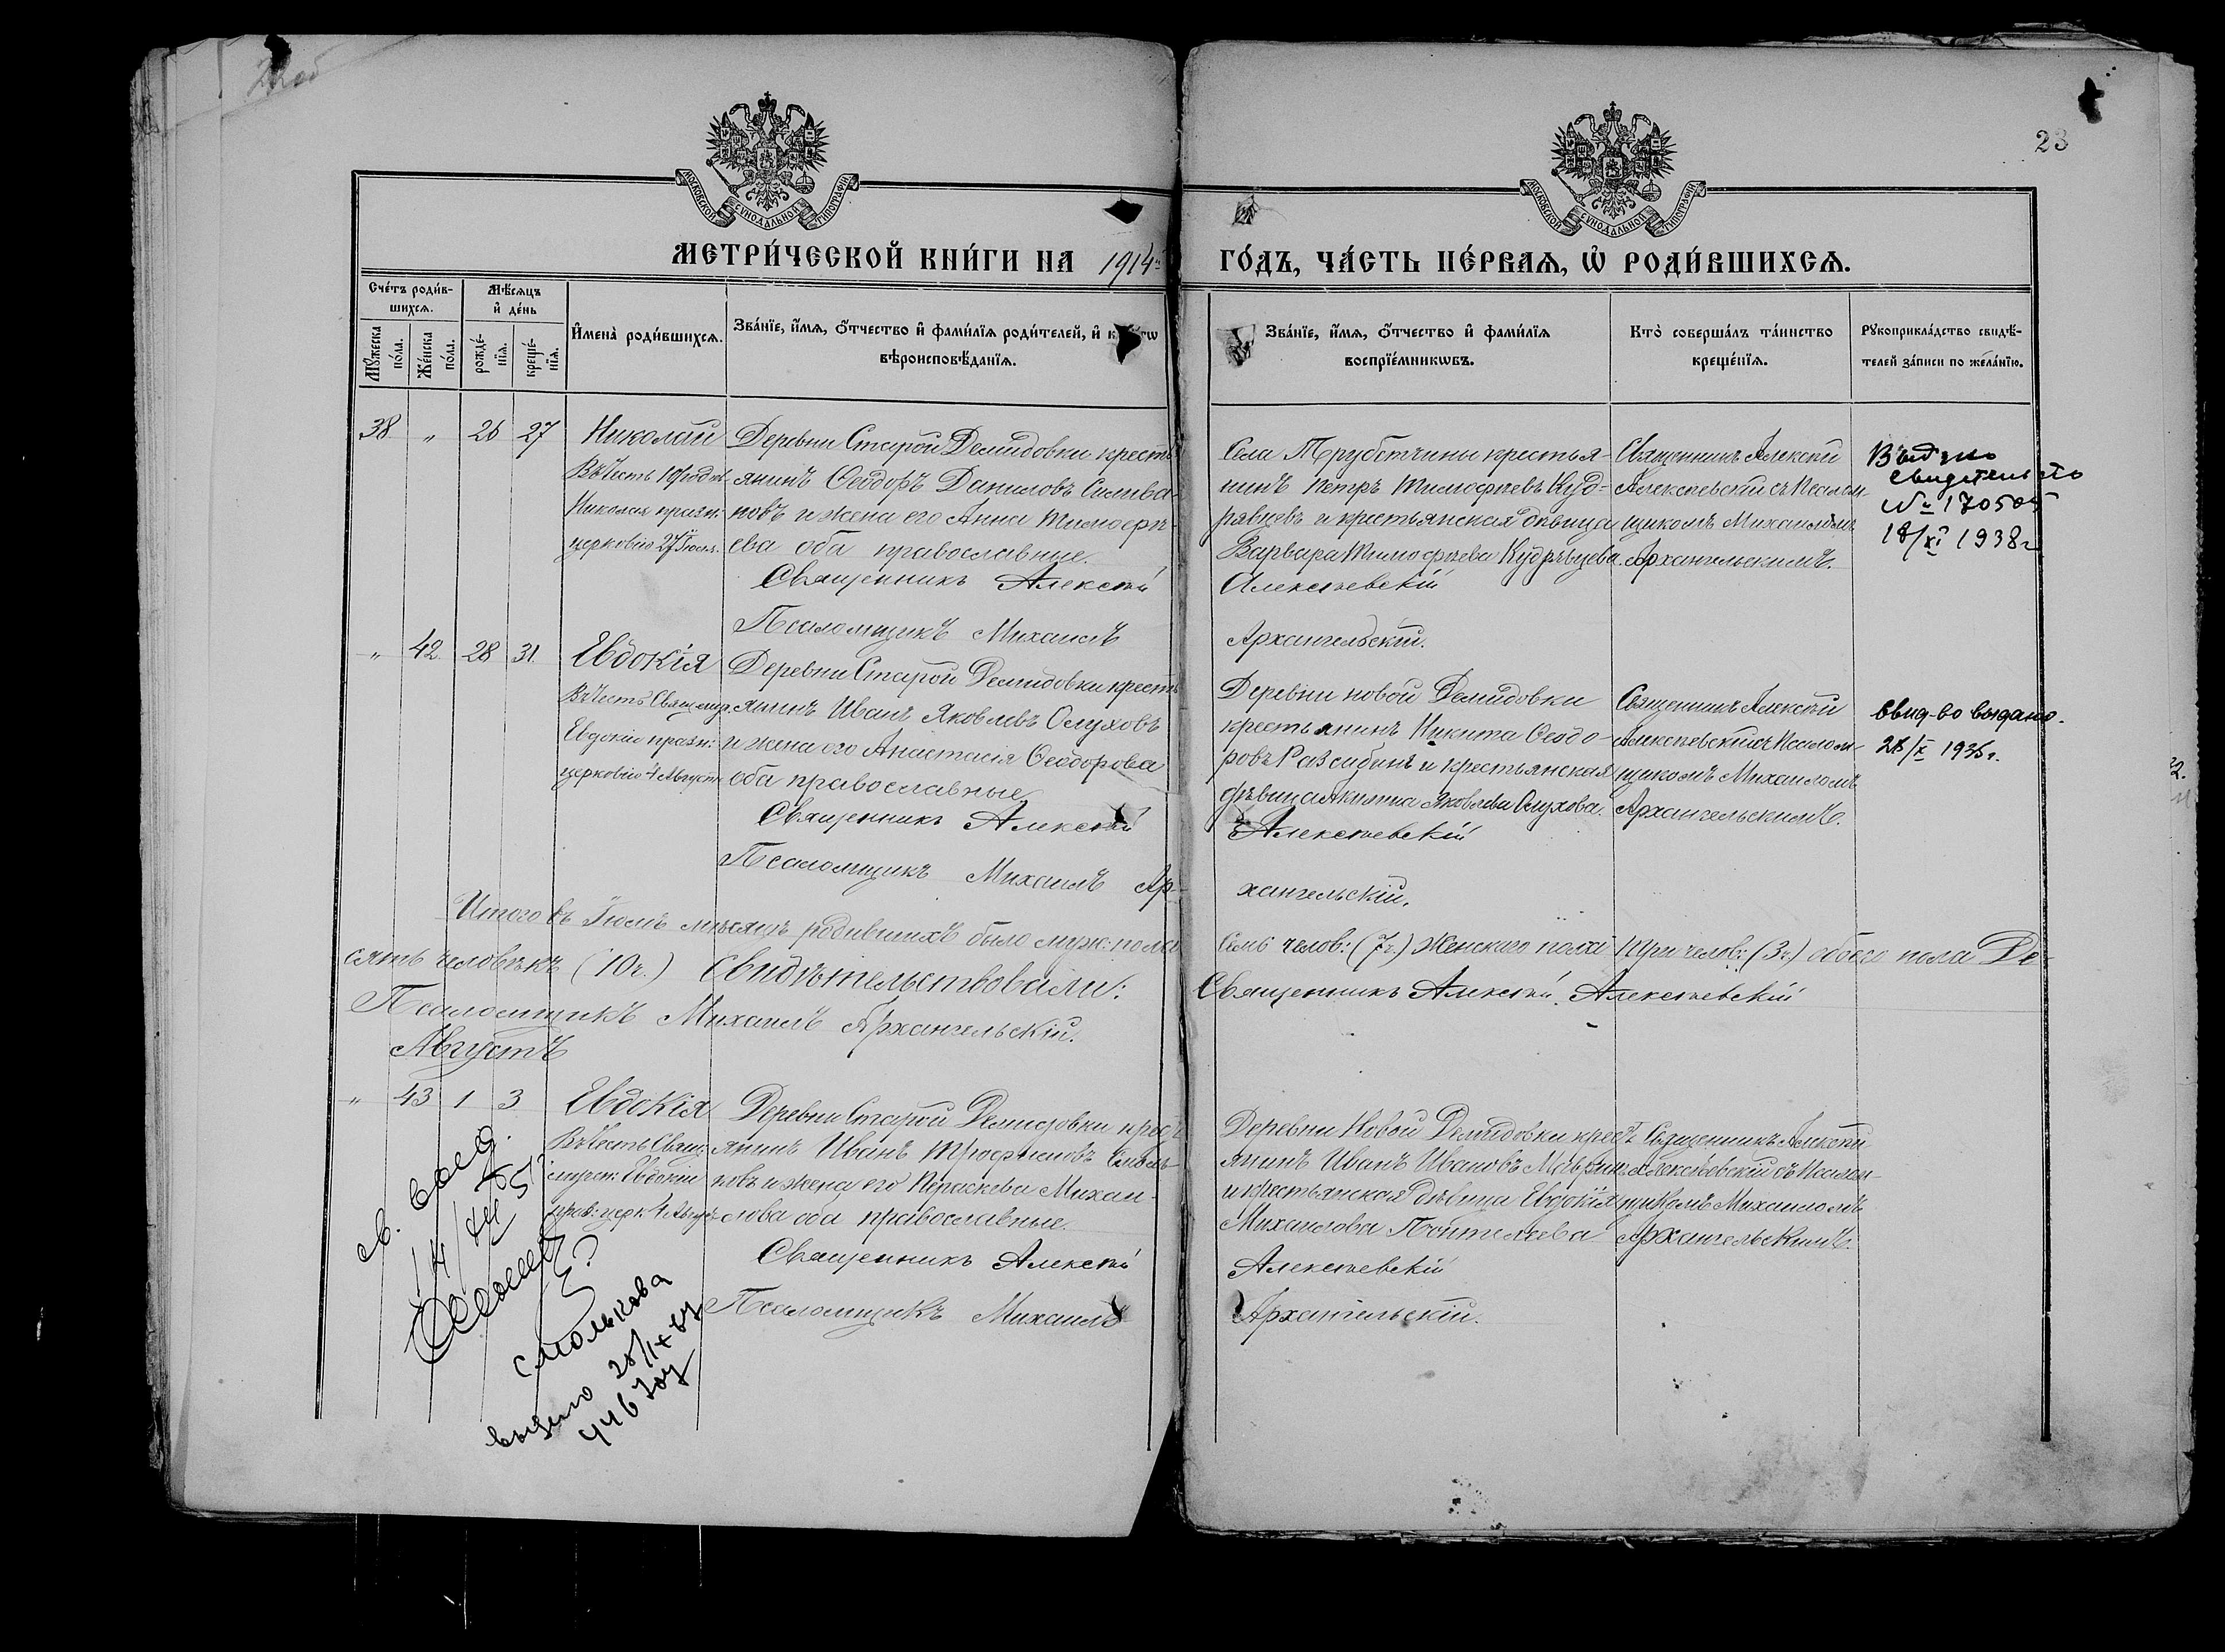 23
МОСКОВСКОЙ СѴНОДАЛЬНОЙ ТИПОГРАФІИ
МОСКОВСКОЙ СѴНОДАЛЬНОЙ ТИПОГРАФІИ
МЕТРИ́ЧЕСКОЙ КНИ́ГИ НА 1914 ГО́ДЪ, ЧА́СТЬ ПЕ́РВАѦ, Ѡ РОДИ́ВШИХСѦ.
Сче́тъ роди́в-
шихсѧ.
Мꙋжеска по́ла.
Же́нска по́ла.
Мѣ́сѧцъ
и҆ де́нь
рожде́-
нїѧ.
креще́-
нїѧ.
И҆мена̀ роди́вшихсѧ.
Зва́нїе, и҆́мѧ, ѻ҆́тчество и҆ фами́лїѧ роди́телей, и҆
вѣроисповѣ́данїѧ.
Зва́нїе, и҆́мѧ, ѻ҆́тчество и҆ фами́лїѧ
воспрїе́мникѡвъ.
Кто̀ соверша́лъ та́инство
креще́нїѧ.
Рꙋкоприкла́дство свидѣ́-
телей за́писи по жела́нїю.
38 " 26 27
Николай
Въ честь
Николая празн:
церковію 27 Іюля.
Деревни Старой Демидовки кресть
янинъ Ѳеодоръ Даниловъ Селива-
новъ и жена его Анна Тимофѣ-
ева оба православные.
Священникъ Алексѣй
Псаломщикъ Михаилъ
Села Трубетчины крестья-
нинъ Петръ Тимофѣевъ Куд-
рявцевъ и крестьянская дѣвица
Варвара Тимофѣева Кудрявцева.
Алексѣевскій
Архангельскій.
Священникъ Алексѣй
Алексѣевскій съ Псалом-
щикомъ Михаиломъ
Архангельскимъ.
Выдано
свидетельство
№ 170505
18/XI 1938г
" 42 28 31.
Евдокія
Въ честь Свящмуч.
Евдокіи празн:
церковію 4 Августа
Деревни Старой Демидовки кресть
янинъ Иванъ Яковлевъ Слуховъ
и жена его Анастасія Ѳеодорова
оба православные
Священникъ Алексѣй
Псаломщикъ Михаилъ Ар-
Деревни новой Демидовки
крестьянинъ Никита Ѳеодо-
ровъ и крестьянская
дѣвица Акилина Яковлева Слухова.
Алексѣевскій
хангельскій.
Священникъ Алексѣй
Алексѣевскій съ Псалом-
щикомъ Михаиломъ
Архангельскимъ.
свид-во выдано.
Итого въ Іюлѣ мѣсяцѣ родившихъ было муж: пола семь челов: (7ч.) Женскаго пола три челов: (3ч.) обоего пола Де-
сять человѣкъ (10ч.) Свидѣтельствовали: Священникъ Алексѣй Алексѣевскій
Псаломщикъ Михаилъ Архангельскій.
Августъ
" 43 1 3
Евдокія
Въ честь Свящ:
Евдокіи
праз: церк: 4 Авгус
Деревни Старой Демидовки крест
янинъ Иванъ Трофимовъ Смоль-
ковъ и жена его Параскева Михаи-
лова оба православные.
Священникъ Алексѣй
Псаломщикъ Михаилъ
Деревни Новой Демидовки крест
янинъ Иванъ Ивановъ
и крестьянская дѣвица Евдокія
Михаилова Пантелеева
Алексѣевскій
Архангельскій.
Священникъ Алексѣй
Алексѣевскій съ Псалом-
щикомъ Михаиломъ
Архангельскимъ.
св. выд.
Смолькова
выдано 28/IX